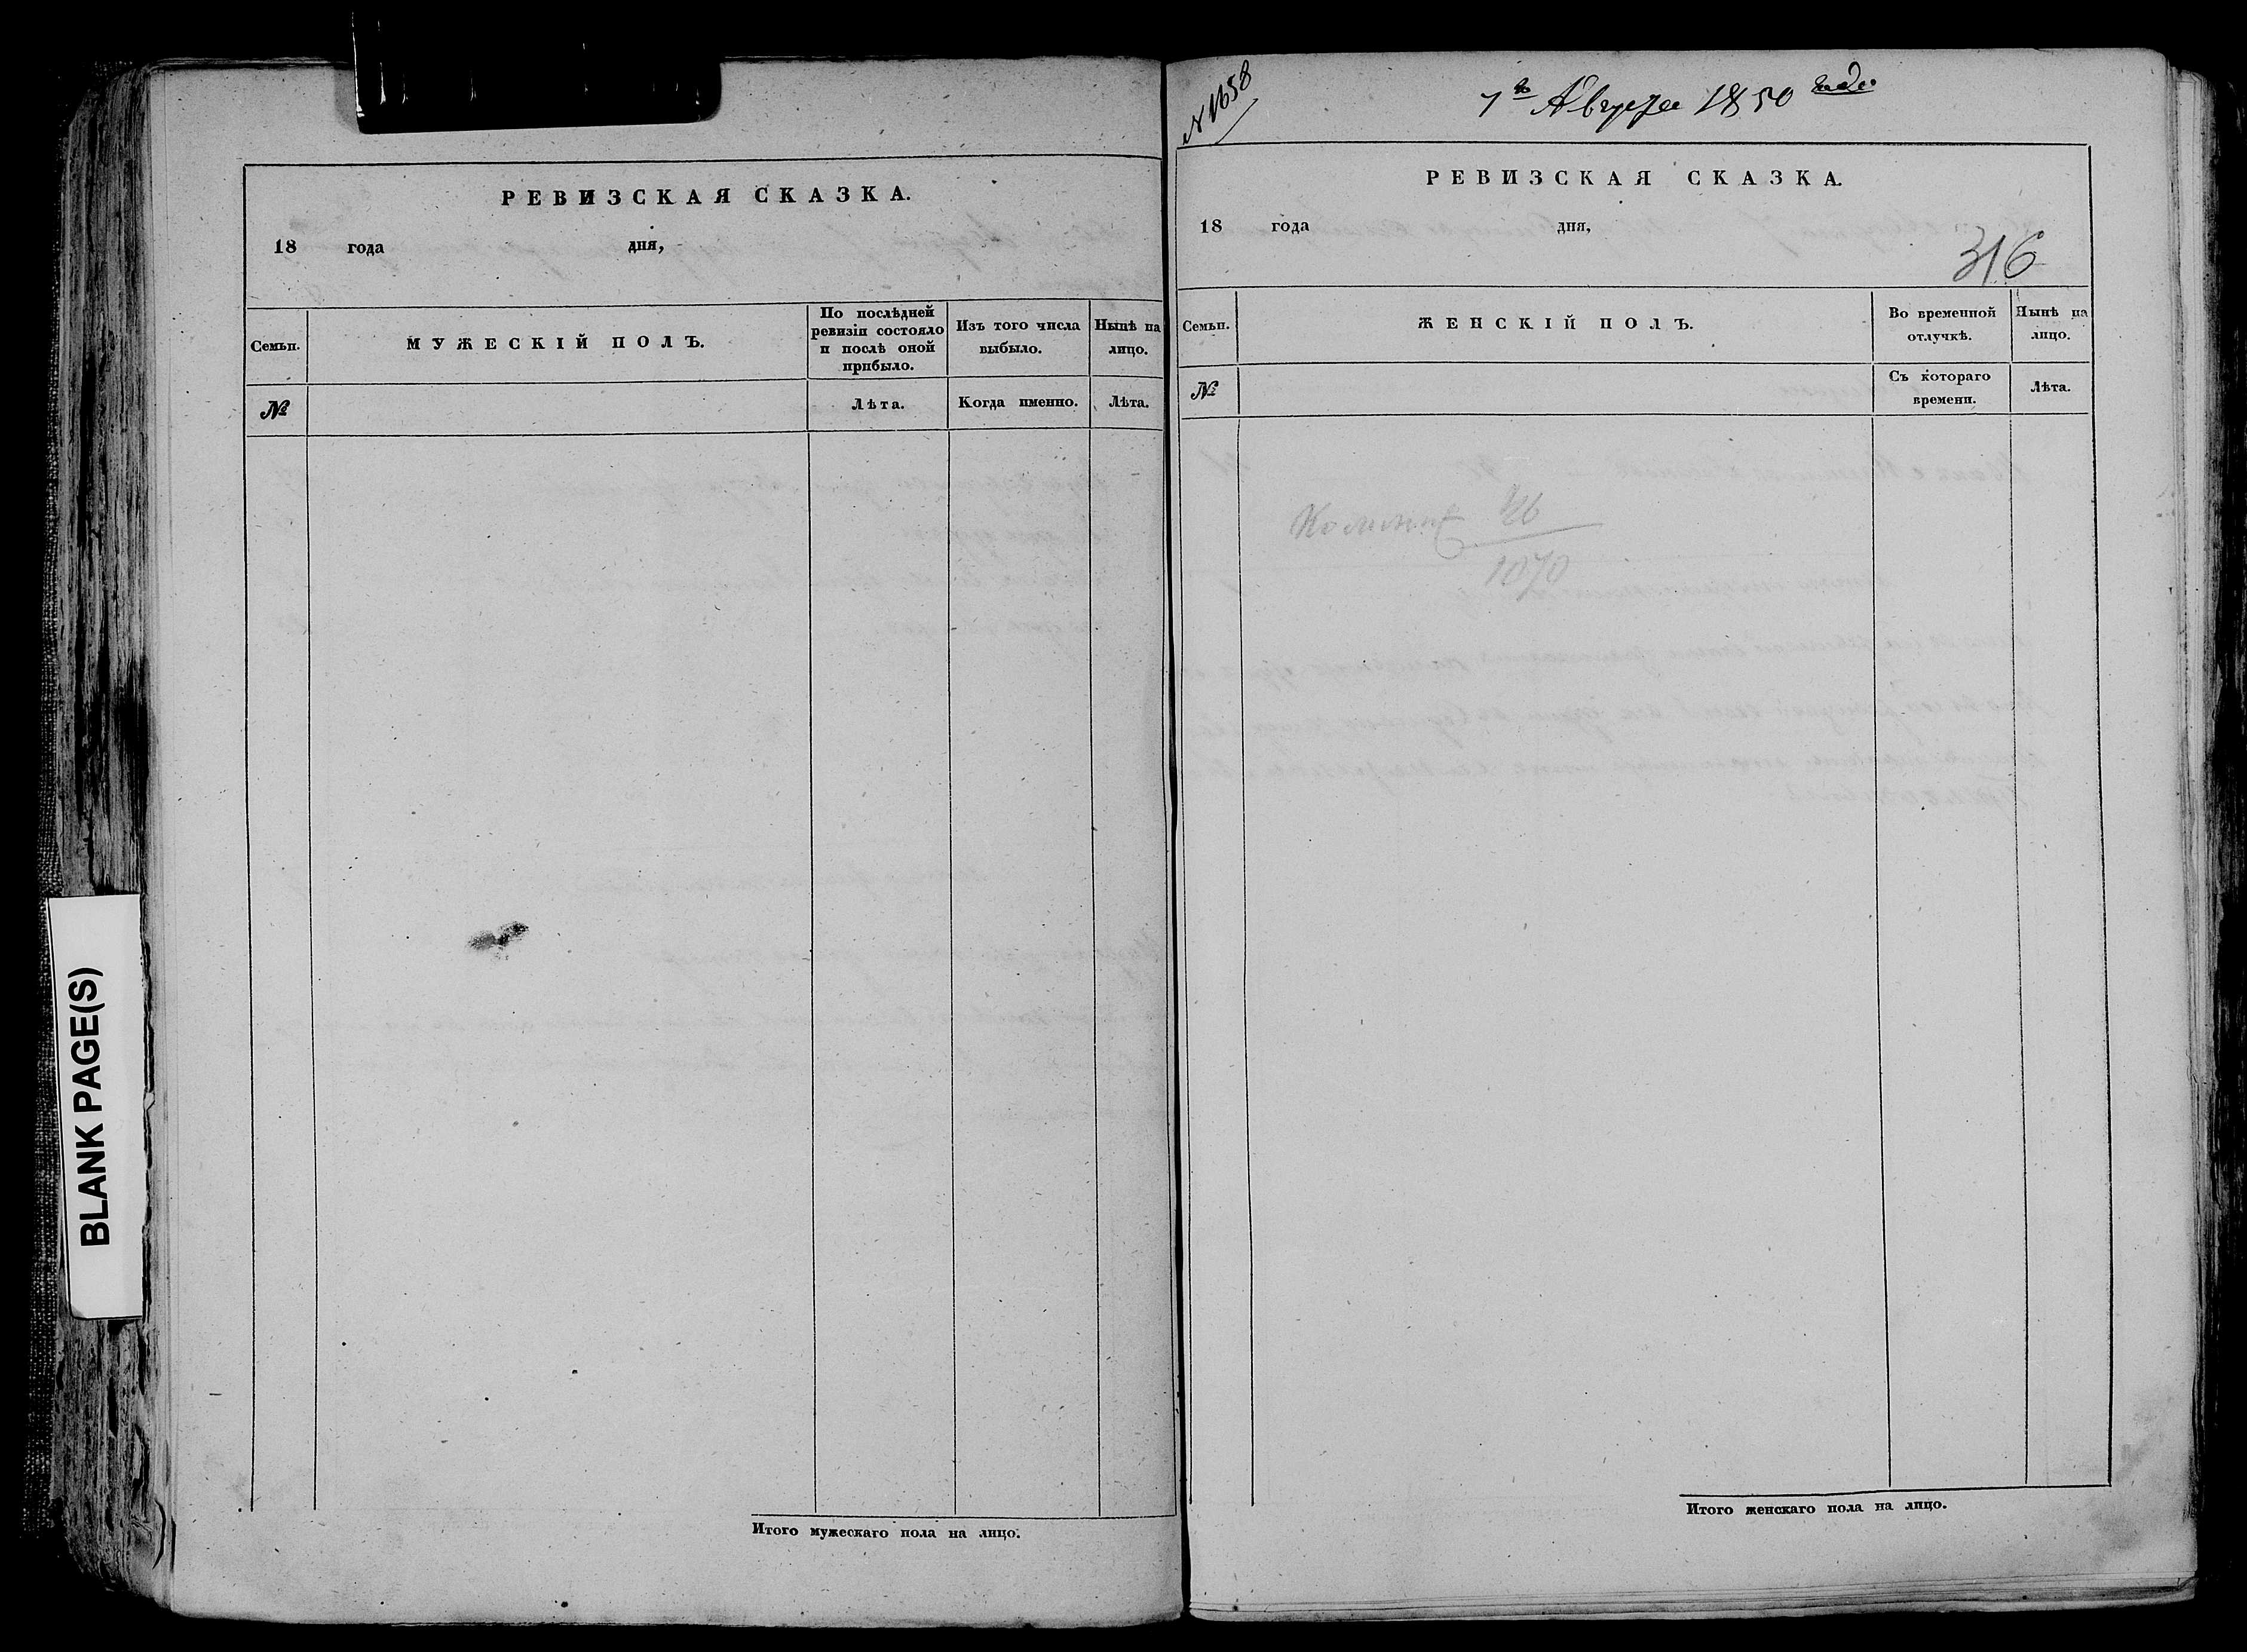 BLANK PAGE(S)
РЕВИЗСКАЯ СКАЗКА.
18 года дня,
Семьи.
МУЖЕСКІЙ ПОЛЪ.
По послѣдней
ревизіи состояло
и послѣ оной
прибыло.
Изъ того числа
выбыло.
Нынѣ на
лицо.
№
Лѣта.
Когда именно.
Лѣта.
Итого мужескаго пола на лицо.
N 1658
7го Августа 1850 года
РЕВИЗСКАЯ СКАЗКА.
18 года дня,
316
Семьи.
ЖЕНСКІЙ ПОЛЪ.
Во временной
отлучкѣ.
Нынѣ на
лицо.
№
Съ котораго
времени.
Лѣта.
1870
Итого женскаго пола на лицо.